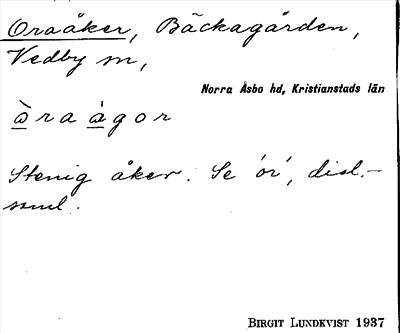 Oraåker, Bäckagården,
Vedby sn,
Norra Åsbo hd, Kristianstads län
òra àgor
Stenig åker. Se 'or', dial.-
saml.
BIRGIT LUNDKVIST 1937